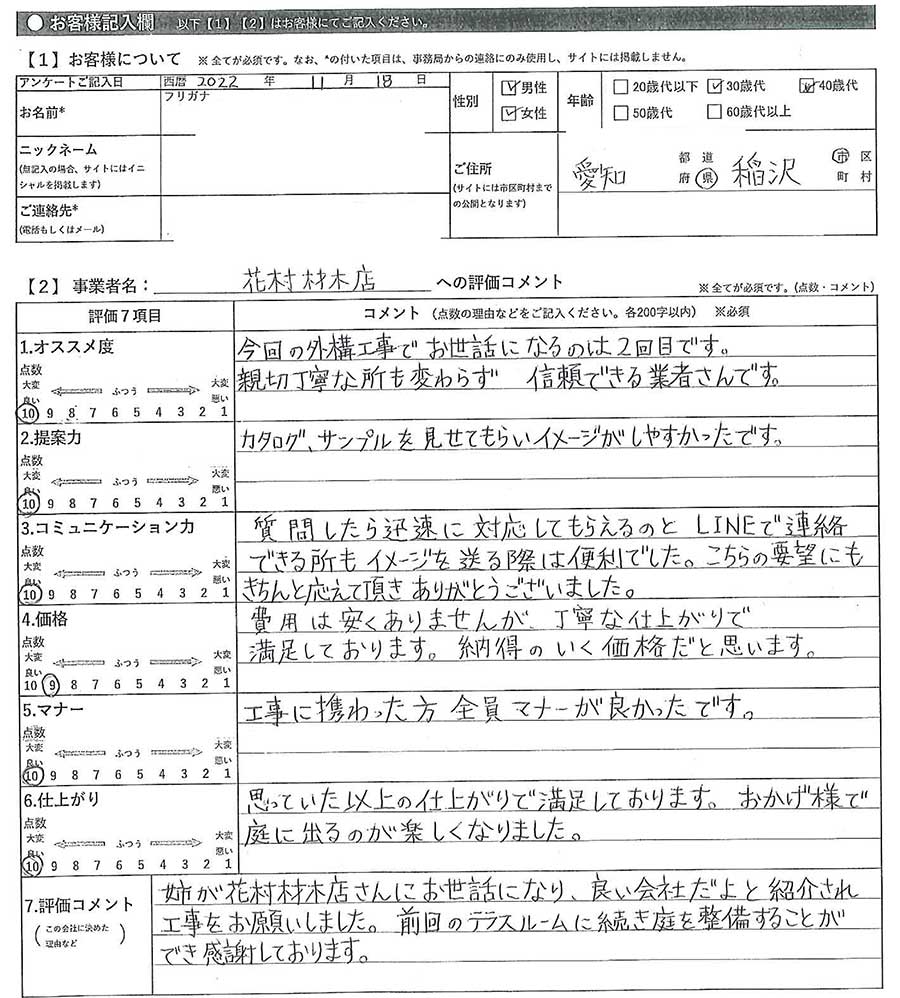 ● お客様記入欄 以下【1】【2】はお客様にてご記入ください。
【1】お客様について ※全てが必須です。なお、*の付いた項目は、事務局からの連絡にのみ使用し、サイトには掲載しません。
アンケートご記入日 西暦 2022 年 11 月 18 日
お名前* フリガナ
性別 ☑男性 ☑女性
年齢 □20歳代以下 ☑30歳代 ☑40歳代
□50歳代 □60歳代以上
ニックネーム
(無記入の場合、サイトにはイニ
シャルを掲載します)
ご連絡先*
(電話もしくはメール)
ご住所
(サイトには市区町村まで
の公開となります)
愛知 都道府県 稲沢 市区町村
【2】事業者名: 花村材木店 への評価コメント ※全てが必須です。(点数・コメント)
評価7項目 コメント (点数の理由などをご記入ください。各200字以内) ※必須
1.オススメ度
点数
大変良い ふつう 大変悪い
10 9 8 7 6 5 4 3 2 1
今回の外構工事でお世話になるのは2回目です。
親切丁寧な所も変わらず 信頼できる業者さんです。
2.提案力
点数
大変良い ふつう 大変悪い
10 9 8 7 6 5 4 3 2 1
カタログ、サンプルを見せてもらいイメージがしやすかったです。
3.コミュニケーション力
点数
大変良い ふつう 大変悪い
10 9 8 7 6 5 4 3 2 1
質問したら迅速に対応してもらえるのと LINEで連絡
できる所もイメージを送る際は便利でした。こちらの要望にも
きちんと応えて頂きありがとうございました。
4.価格
点数
大変良い ふつう 大変悪い
10 9 8 7 6 5 4 3 2 1
費用は安くありませんが、丁寧な仕上がりで
満足しております。納得のいく価格だと思います。
5.マナー
点数
大変良い ふつう 大変悪い
10 9 8 7 6 5 4 3 2 1
工事に携わった方 全員マナーが良かったです。
6.仕上がり
点数
大変良い ふつう 大変悪い
10 9 8 7 6 5 4 3 2 1
思っていた以上の仕上がりで満足しております。おかげ様で
庭に出るのが楽しくなりました。
7.評価コメント
(この会社に決めた
理由など)
姉が花村材木店さんにお世話になり、良い会社だよと紹介され
工事をお願いしました。前回のテラスルームに続き庭を整備することが
でき感謝しております。